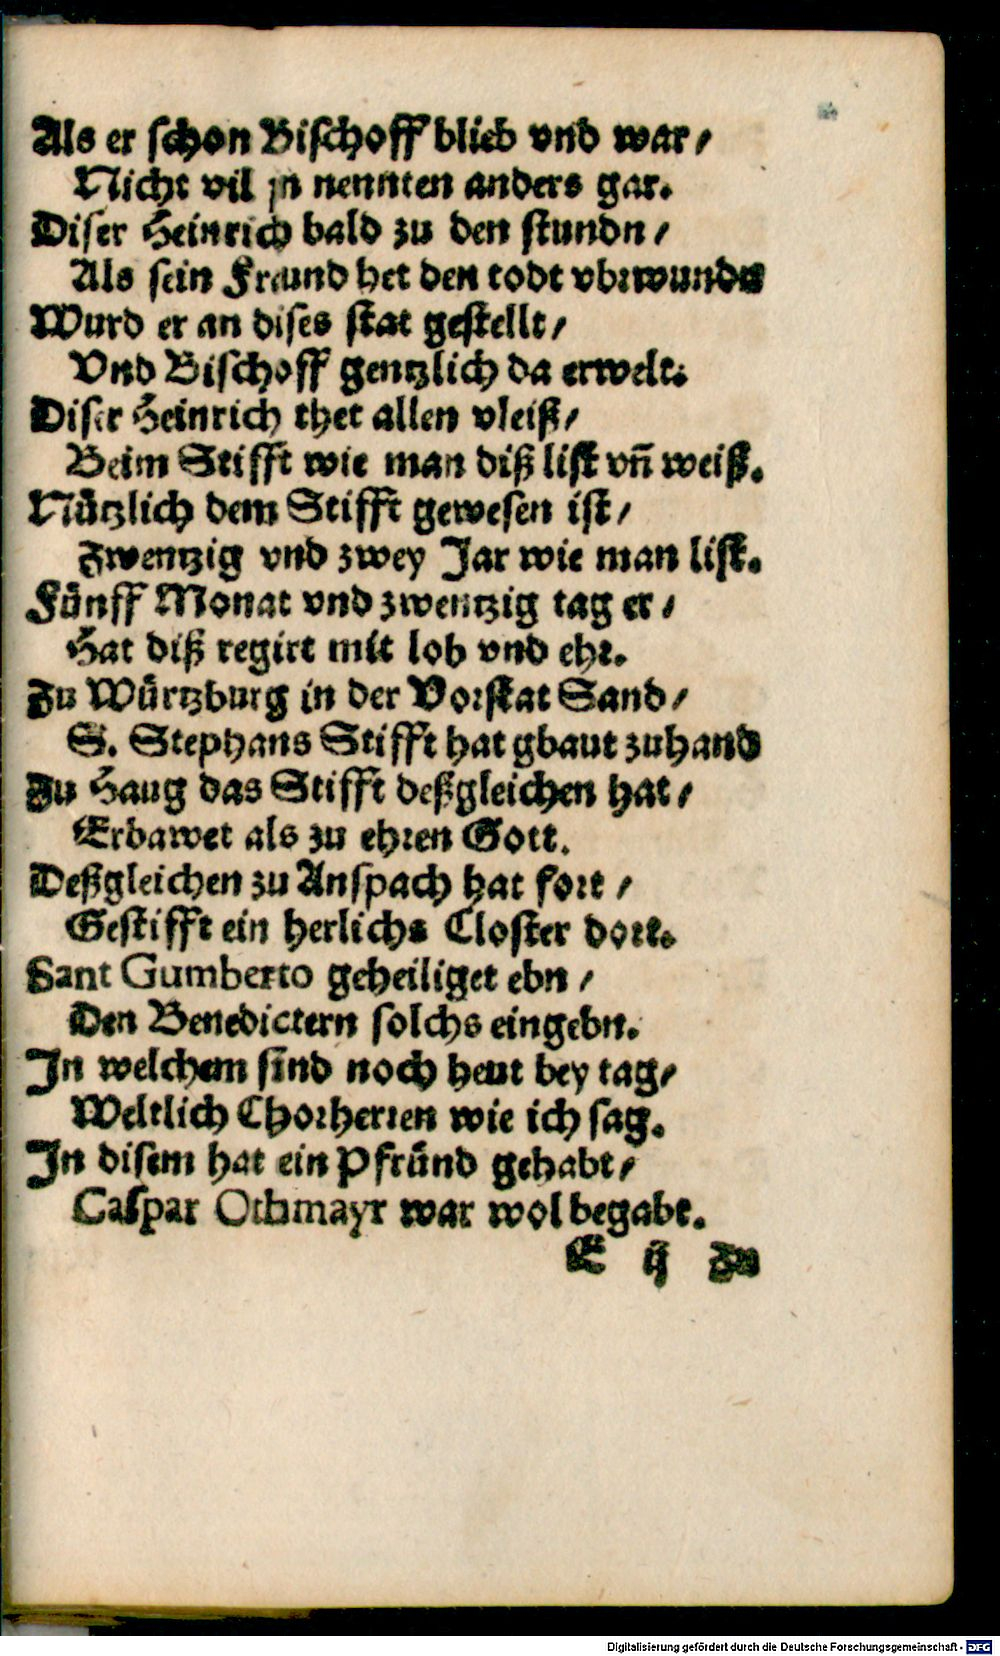 Als er schon Bischoff blieb vnd war /
Nicht vil jn nennten anders gar.
Diser Heinrich bald zu den stundn /
Als sein Freund het den todt vbrwunden
Wurd er an dises stat gestellt /
Vnd Bischoff gentzlich da erwelt.
Diser Heinrich thet allen vleiß /
Beim Stifft wie man diß list vn̄ weiß.
Nützlich dem Stifft gewesen ist /
Zwentzig vnd zwey Jar wie man list.
Fünff Monat vnd zwentzig tag er /
Hat diß regirt mit lob vnd ehr.
Zu Würtzburg in der Vorstat Sand /
S. Stephans Stifft hat gbaut zuhand
Zu Haug das Stifft deßgleichen hat /
Erbawet als zu ehren Gott.
Deßgleichen zu Anspach hat fort /
Gestifft ein herlichs Closter dort.
Sant Gumberto geheiliget ebn /
Den Benedictern solchs eingebn.
In welchem sind noch heut bey tag /
Weltlich Chorherren wie ich sag.
In disem hat ein Pfründ gehabt /
Caspar Othmayr war wol begabt.
E ij Zu
Digitalisierung gefördert durch die Deutsche Forschungsgemeinschaft - DFG